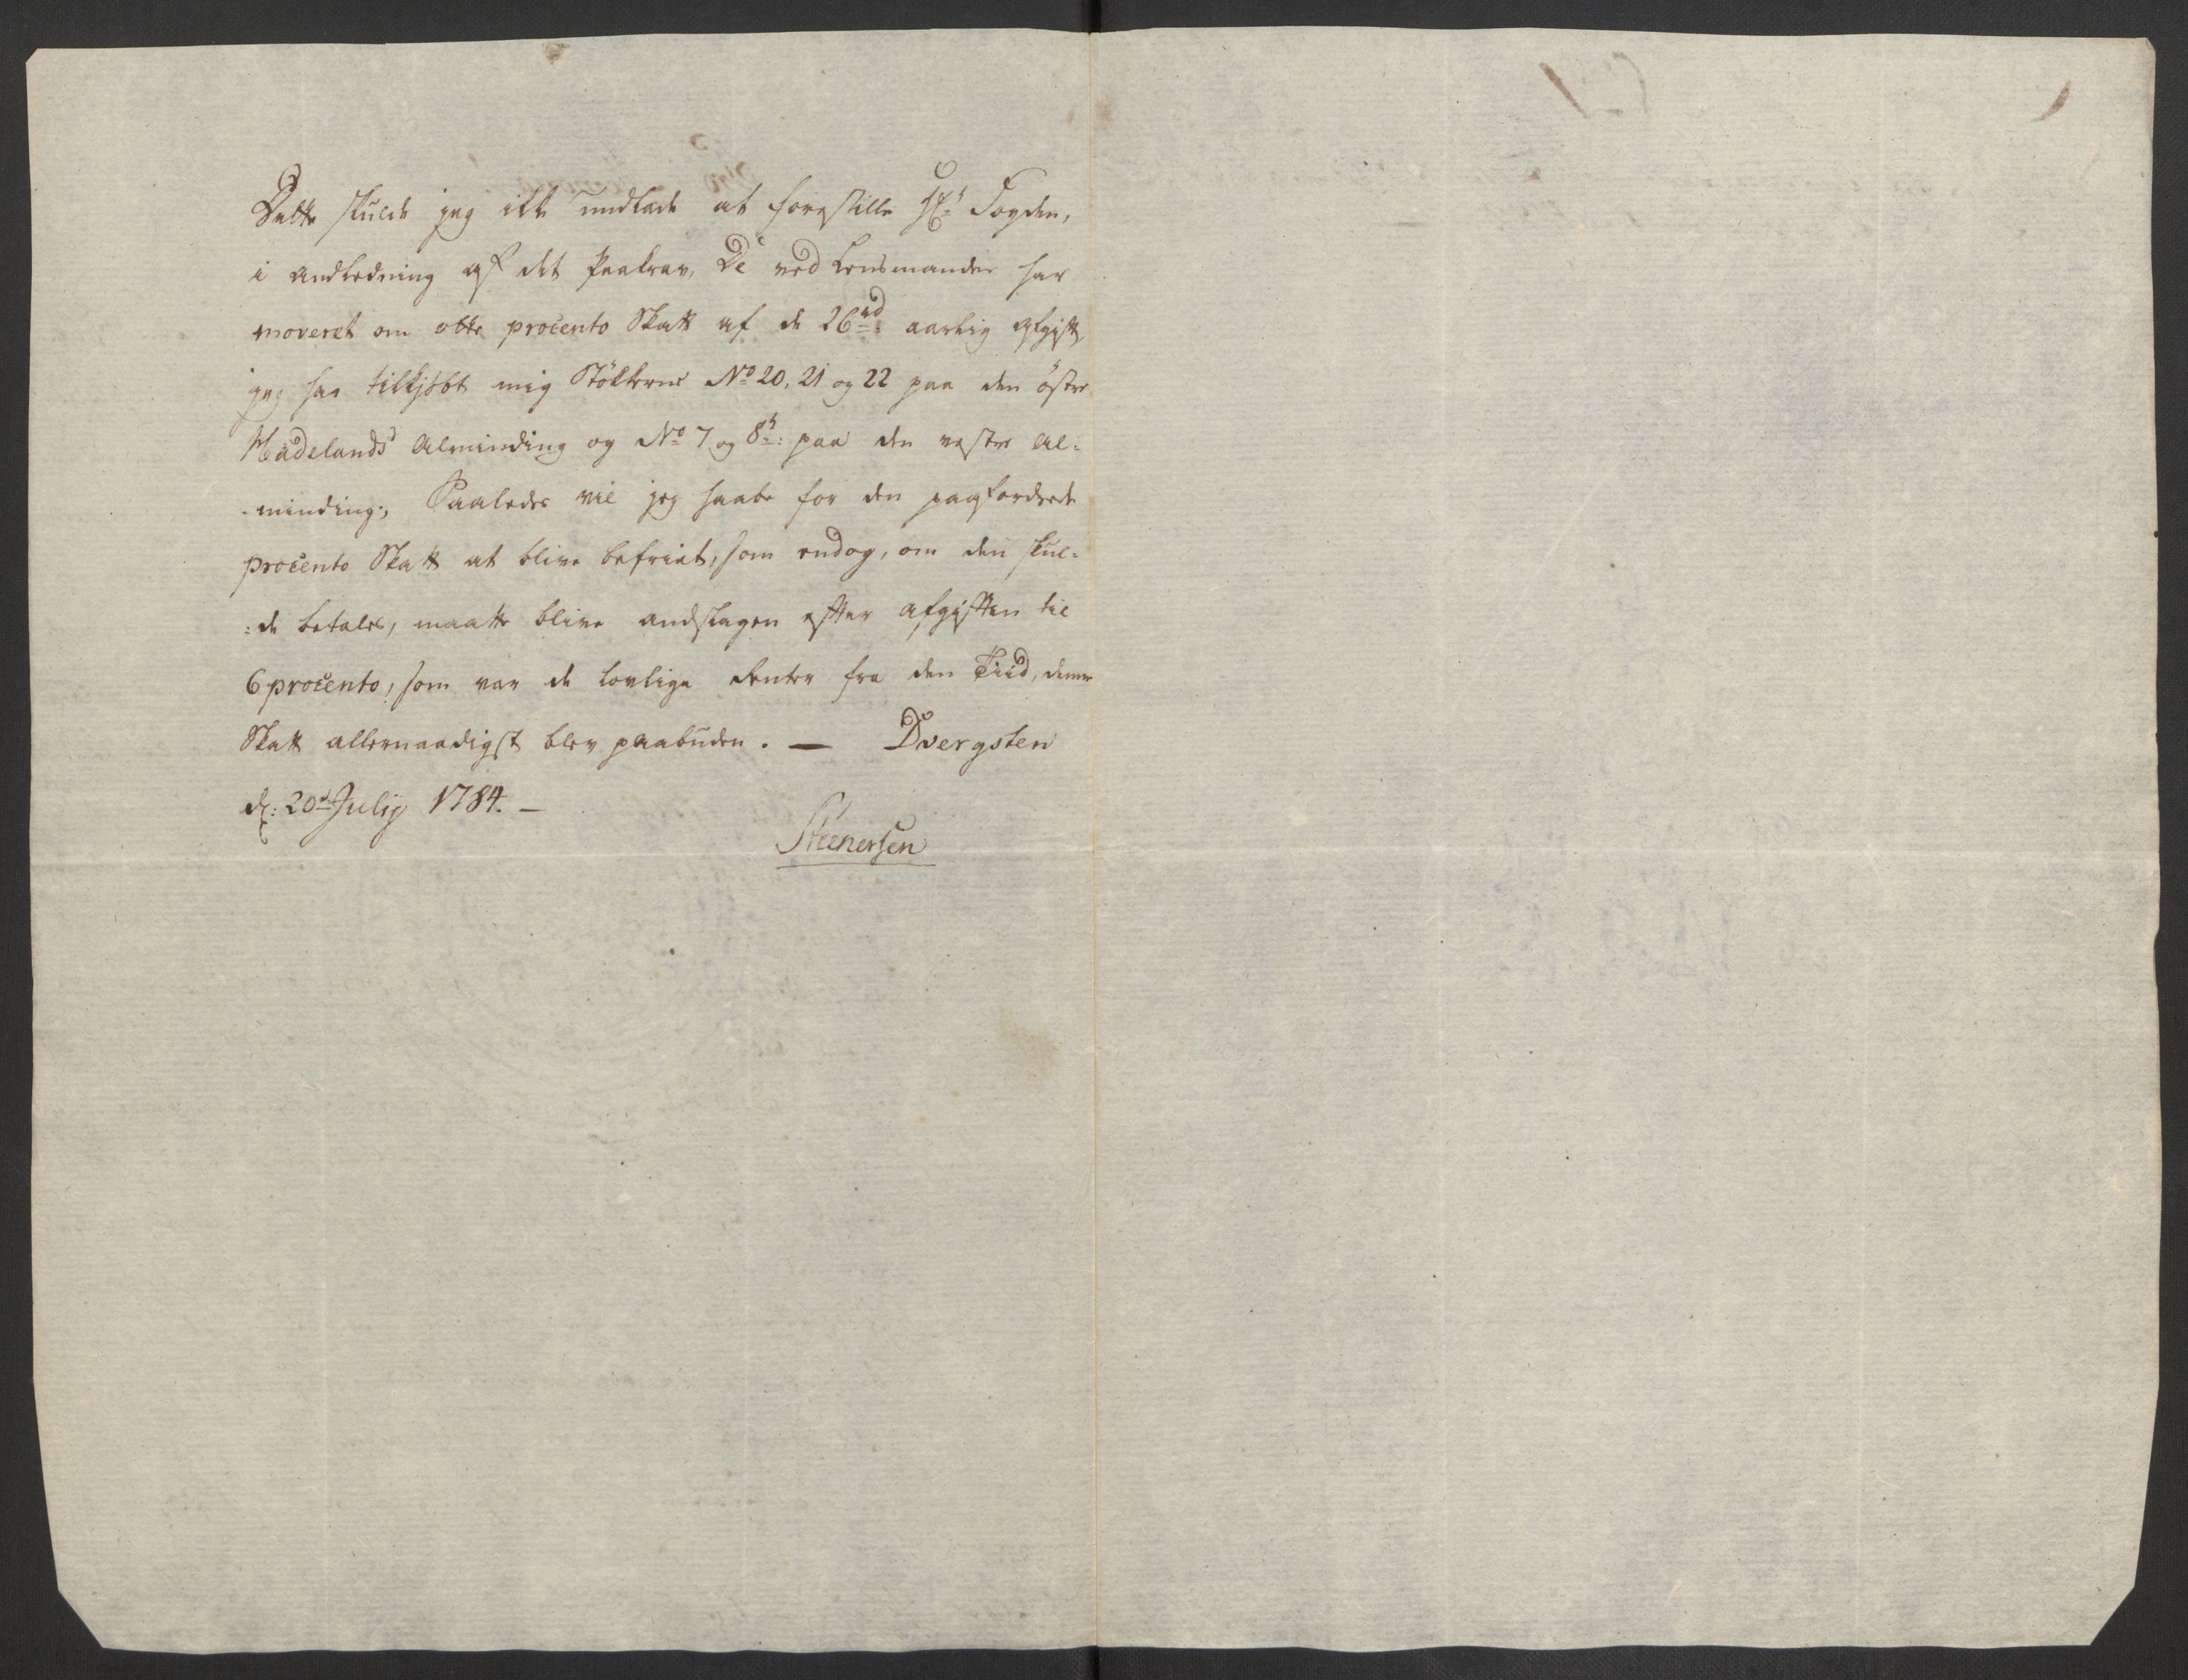 Dette skulde jeg ikke undlade at forestille Hr: Fogden,
i andledning af det Paakrav, De ved Lensmanden har
moveret om otte procento Skatt af de 26rd: aarlig afgift
jeg har tilkjöbt mig Stökkerne No 20, 21 og 22 paa den östre
Hadelands Alminding og No 7 og 8: paa den vestre Al-
-minding; Saaledes vil jeg haabe for den paafordrede
procento Skatt at blive befriet, som endog, om den skul-
:de betales, maatte blive andslagen efter afgiften til
6 procento, som var de lovlige Renter fra den Tiid, denne
Skatt allernaadigst blev paabuden. — Dvergsten
d: 20de Julij 1784. —
Steenersen